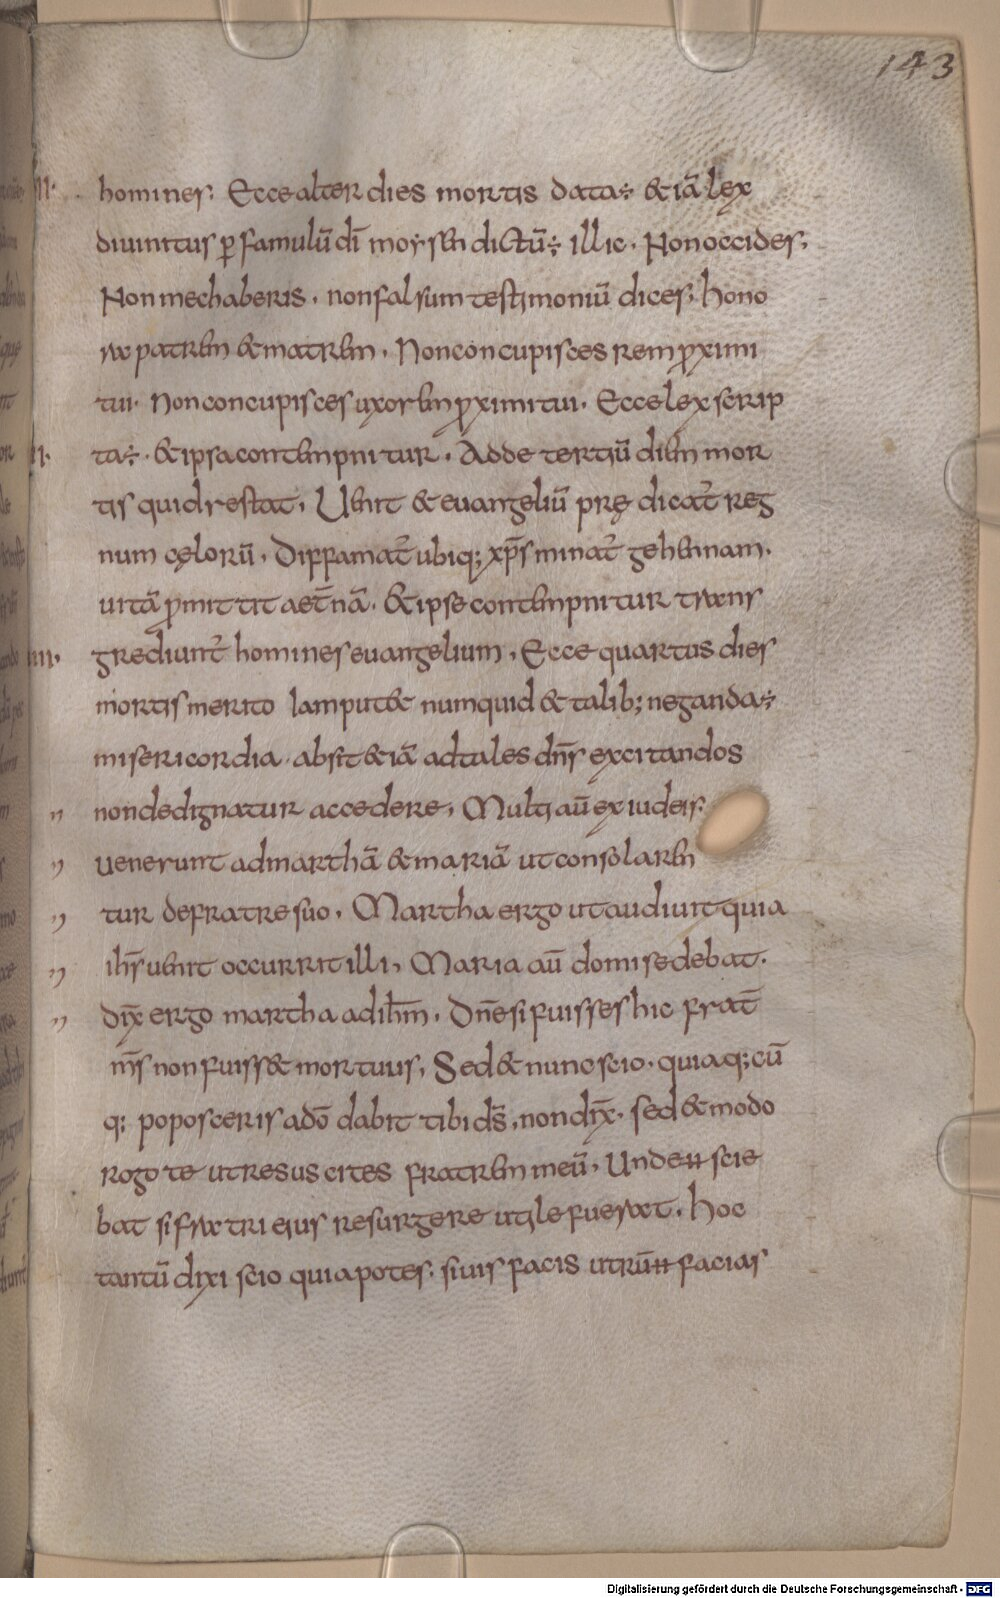 143
II. homines; Ecce alter dies mortis data÷ &iā lex
divinitus ꝑ famulū dī moysen dictū÷ illic. Non occides.
Non mechaberis. non falsum testimoniū dices; hono
ra patrem & matrem. Non concupisces rem ꝓximi
tui. Non concupisces uxorem ꝓximi tui. Ecce lex scrip
II. ta÷. & ipsa contempnitur. Adde tertiū diem mor
tis quid restat. Venit & euangeliū prędicat̄ reg
num cęlorū. Diffamat̄ ubiq; xp̄s minat̄ gehennam.
uitā ꝓmittit aet̄nā. & ipse contempnitur trans
IIII. grediunt̄ homines euangelium. Ecce quartus dies
mortis merito iam put& numquid & talib; neganda÷
misericordia. absit &iā ad tales dn̄s excitandos
non dedignatur accedere. Multi aū ex iudeis
uenerunt ad marthā & mariā ut consolaren
tur de fratre suo. Martha ergo ut audiuit quia
ih̄s uenit occurrit illi. Maria aū domi sedebat.
dix̄ ergo martha ad ih̄m. Dn̄e si fuisses hic frat̄
m̄s non fuiss& mortuus. Sed & nunc scio. quia q;cū
q; poposceris a dō dabit tibi ds̄. non dix̄. sed & modo
rogo te ut resuscites fratrem meū. Unde ħ scie
bat si fratri eius resurgere utile fuerat. hoc
tantū dixi scio quia potes. si uis facis utrū ħ facias
Digitalisierung gefördert durch die Deutsche Forschungsgemeinschaft - DFG